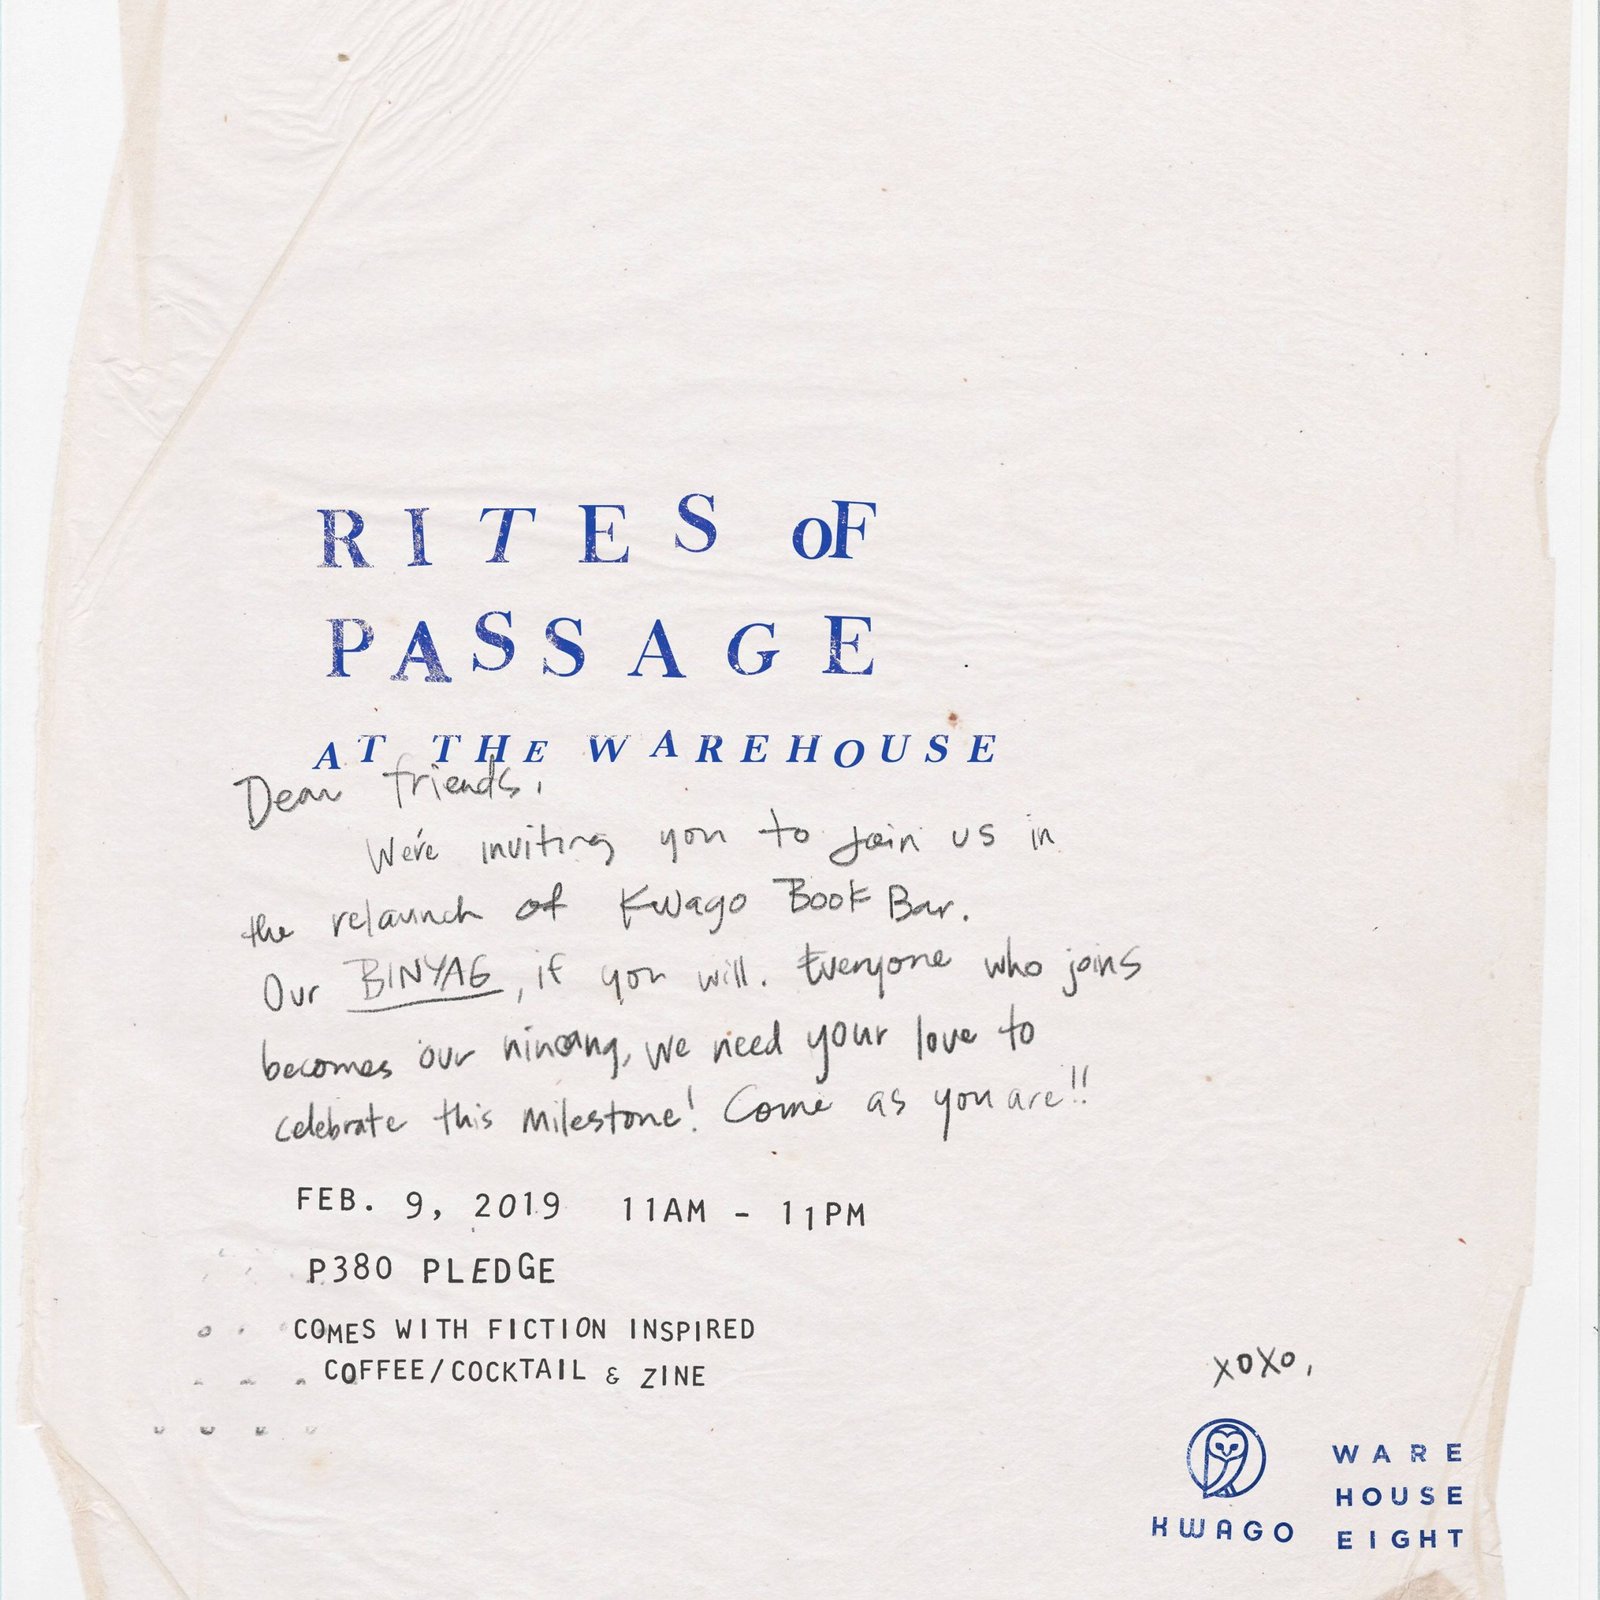 RITES OF
PASSAGE
AT THE WAREHOUSE
Dear friends,
We're inviting you to join us in
the relaunch of Kwago Book Bar.
Our BINYAG, if you will. Everyone who joins
becomes our ninang, we need your love to
celebrate this milestone! Come as you are!!
FEB. 9, 2019 11AM - 11PM
P380 PLEDGE
COMES WITH FICTION INSPIRED
COFFEE/COCKTAIL & ZINE
XOXO,
KWAGO
WARE
HOUSE
EIGHT